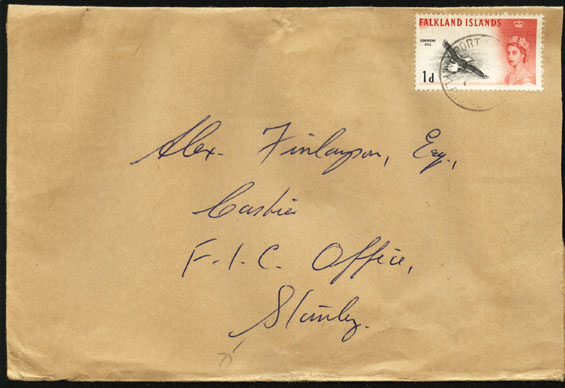 FALKLAND ISLANDS
1d
Alex. Finlayson, Esq.,
Cashier
F.I.C. Office,
Stanley.